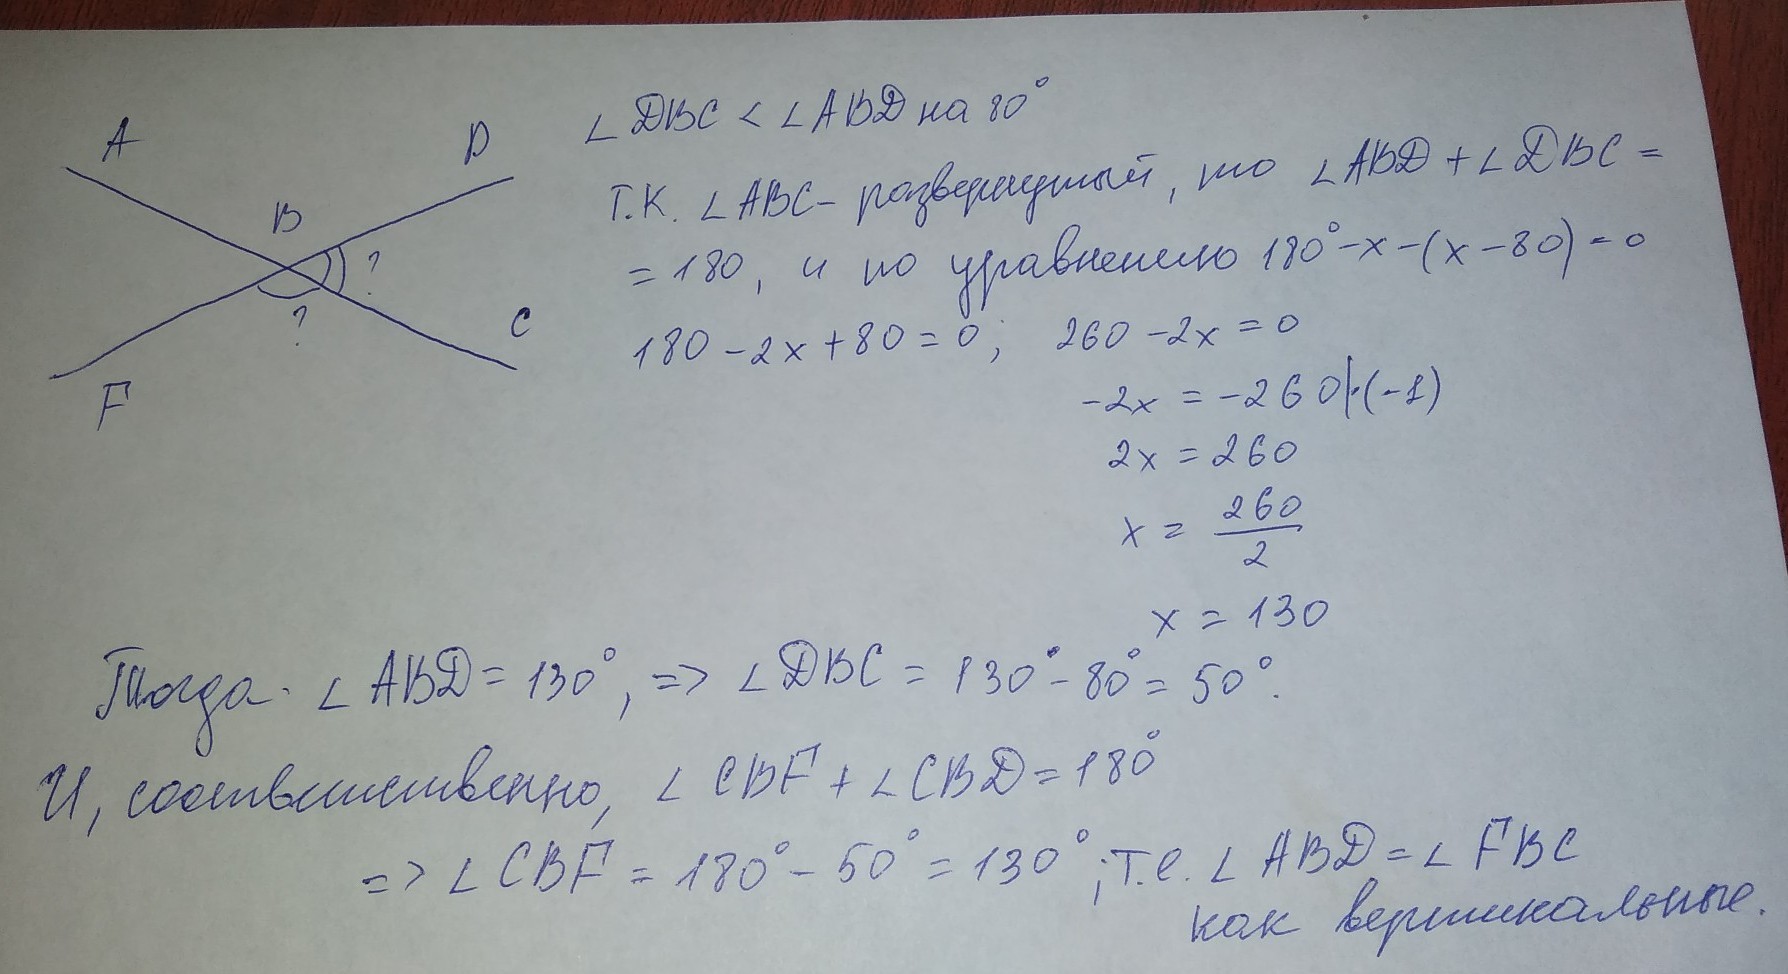 A
D
B
?
?
C
F
∠DBC < ∠ABD на 80°
Т.К. ∠ABC - развернутый, то ∠ABD + ∠DBC =
= 180, и по уравнению 180° - x - (x - 80) = 0
180 - 2x + 80 = 0; 260 - 2x = 0
-2x = -260 |·(-1)
2x = 260
x = 260/2
x = 130
Тогда ∠ABD = 130°, => ∠DBC = 130° - 80° = 50°.
И, соответственно, ∠CBF + ∠CBD = 180°
=> ∠CBF = 180° - 50° = 130°; т.е. ∠ABD = ∠FBC
как вертикальные.